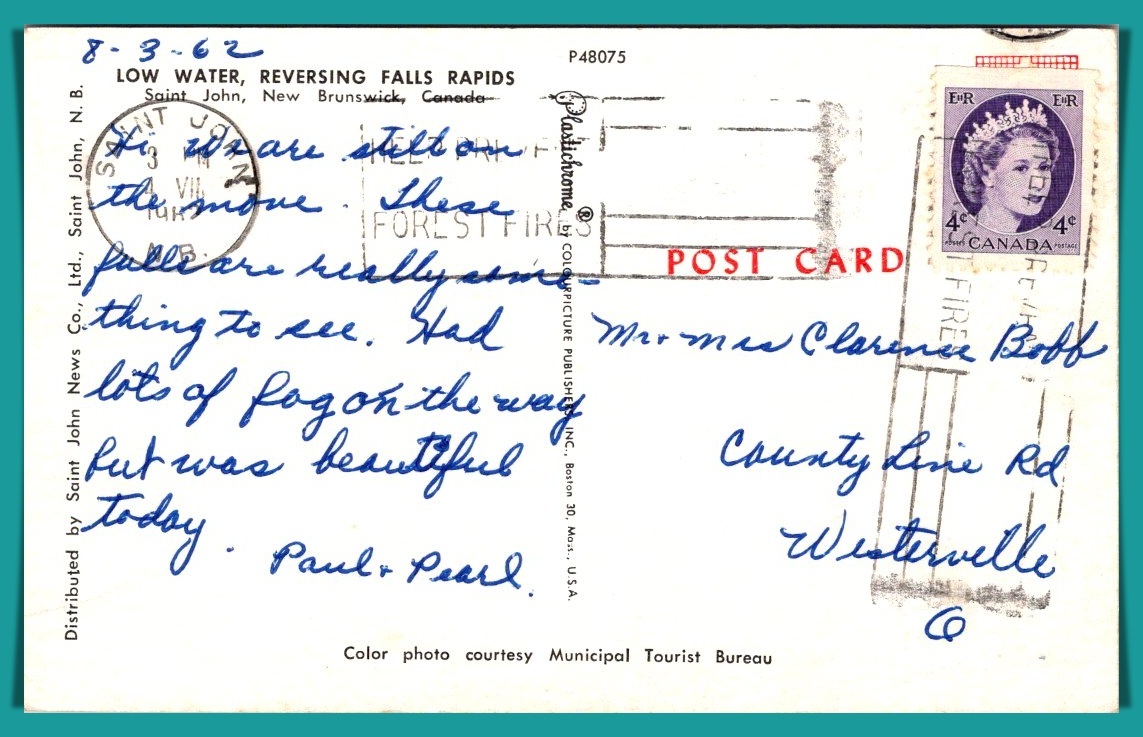 8-3-62
LOW WATER, REVERSING FALLS RAPIDS
Saint John, New Brunswick, Canada
P48075
Hi, We are still on
the move. These
falls are really some-
thing to see. Had
lots of fog on the way
but was beautiful
today.
Paul + Pearl.
SAINT JOHN
VII
N.B.
HELP PREVENT
FOREST FIRES
Distributed by Saint John News Co., Ltd., Saint John, N. B.
Plastichrome ® by COLOURPICTURE PUBLISHERS, INC., Boston 30, Mass., U.S.A.
POST CARD
EIIR EIIR
4¢ 4¢
POSTES CANADA POSTAGE
Mr + Mrs Clarence Bobb
County Line Rd
Westerville
O
Color photo courtesy Municipal Tourist Bureau